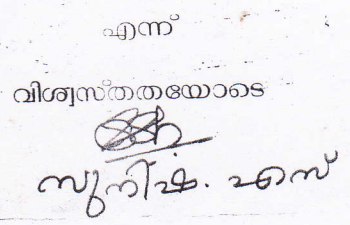 എന്ന്
വിശ്വസ്തതയോടെ
സുനിഷ. എസ്